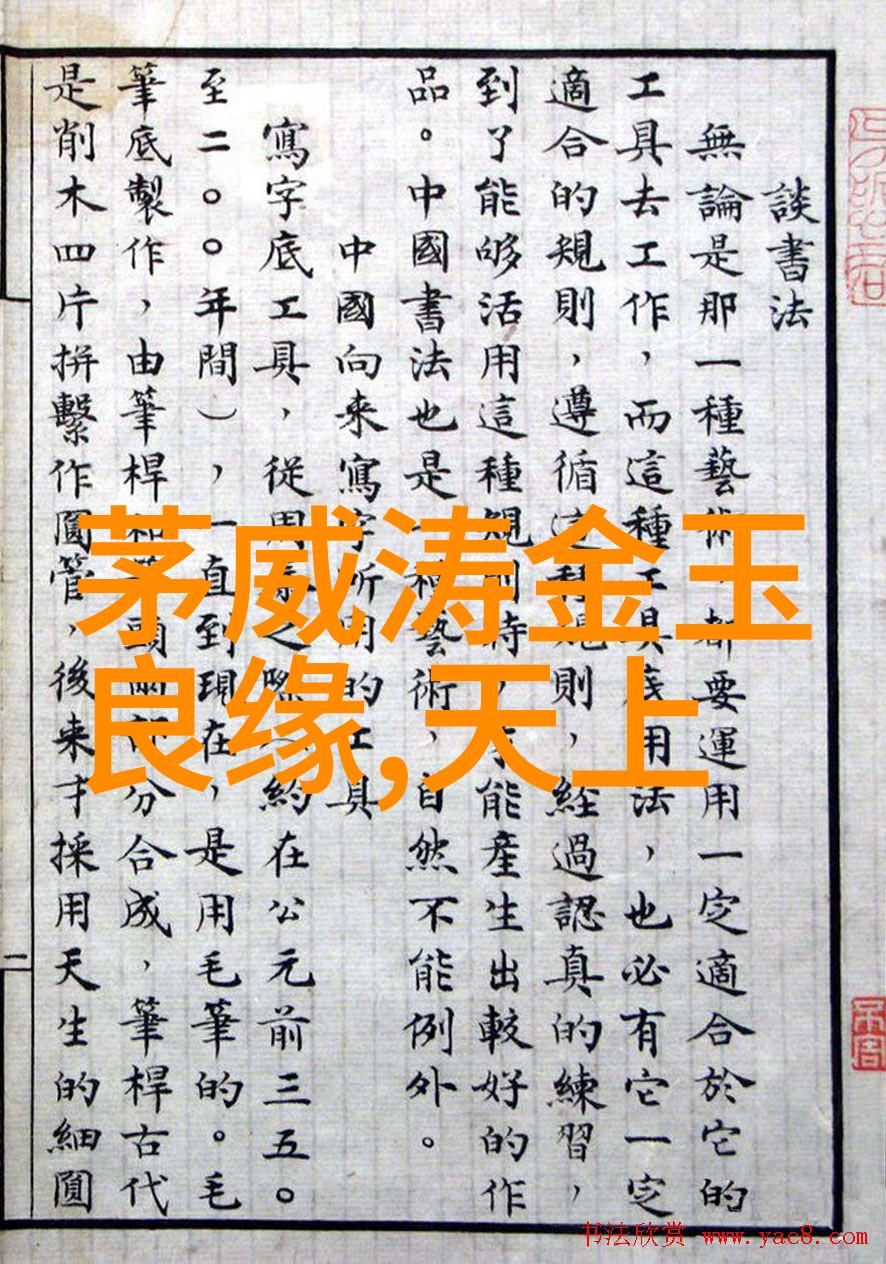 談書法
無論是那一種藝術，都要運用一定適合於它的
工具去工作，而這種工具底用法，也必有它一定
適合的規則，遵循這種規則，經過認真的練習，
到了能够活用這種規則時，才能產生出較好的作
品。中國書法也是一種藝術，自然不能例外。
中國向來寫字所用的工具
寫字底工具，從周秦之際（約在公元前三五〇
至二〇〇年間），一直到現在，是用毛筆的。毛
筆底製作，由筆桿和筆頭兩部分合成，筆桿古代
是削木四片拼繫作圓管，後來才採用天生的細圓
二
茅威涛金玉
良缘,天上
书法欣赏 www.yac8.com